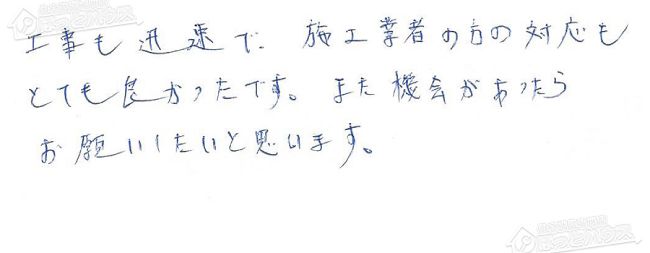 工事も迅速で、施工業者の方の対応も
とても良かったです。また機会があったら
お願いしたいと思います。